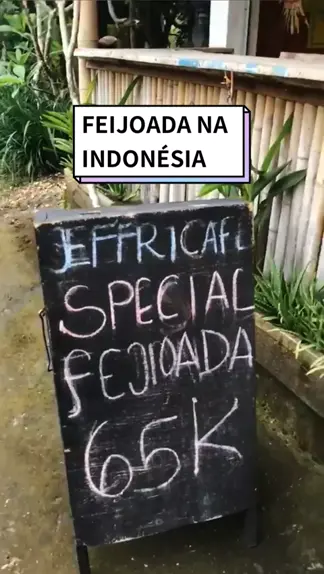 FEIJOADA NA
INDONÉSIA
JEFFRI CAFE
SPECIAL
FEJIOADA
65K